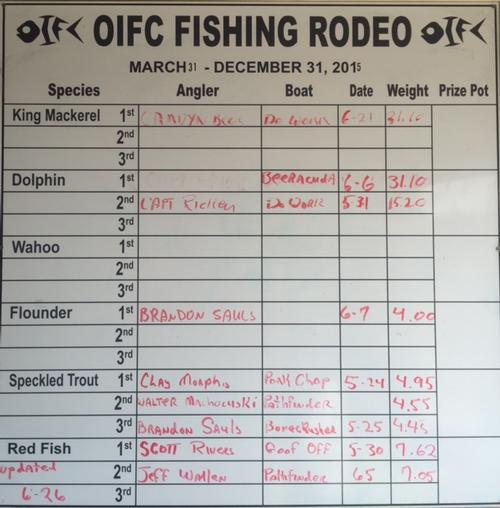 OIFC OIFC FISHING RODEO OIFC
MARCH 31 - DECEMBER 31, 2015
Species Angler Boat Date Weight Prize Pot
King Mackerel 1st 6-21 31.10
2nd
3rd
Dolphin 1st BEERACUDA 6-6 31.10
2nd CAPT Rickey Do Work 5-31 15.20
3rd
Wahoo 1st
2nd
3rd
Flounder 1st BRANDON SAULS 6-7 4.00
2nd
3rd
Speckled Trout 1st CLAY Morphis Pork Chop 5-24 4.95
2nd WALTER Pathfinder 4.55
3rd BRANDON SAULS 5-25 4.45
Red Fish 1st SCOTT Rivers Goof OFF 5-30 7.62
updated 2nd JEFF Wallen Pathfinder 6-5 7.05
6-26 3rd